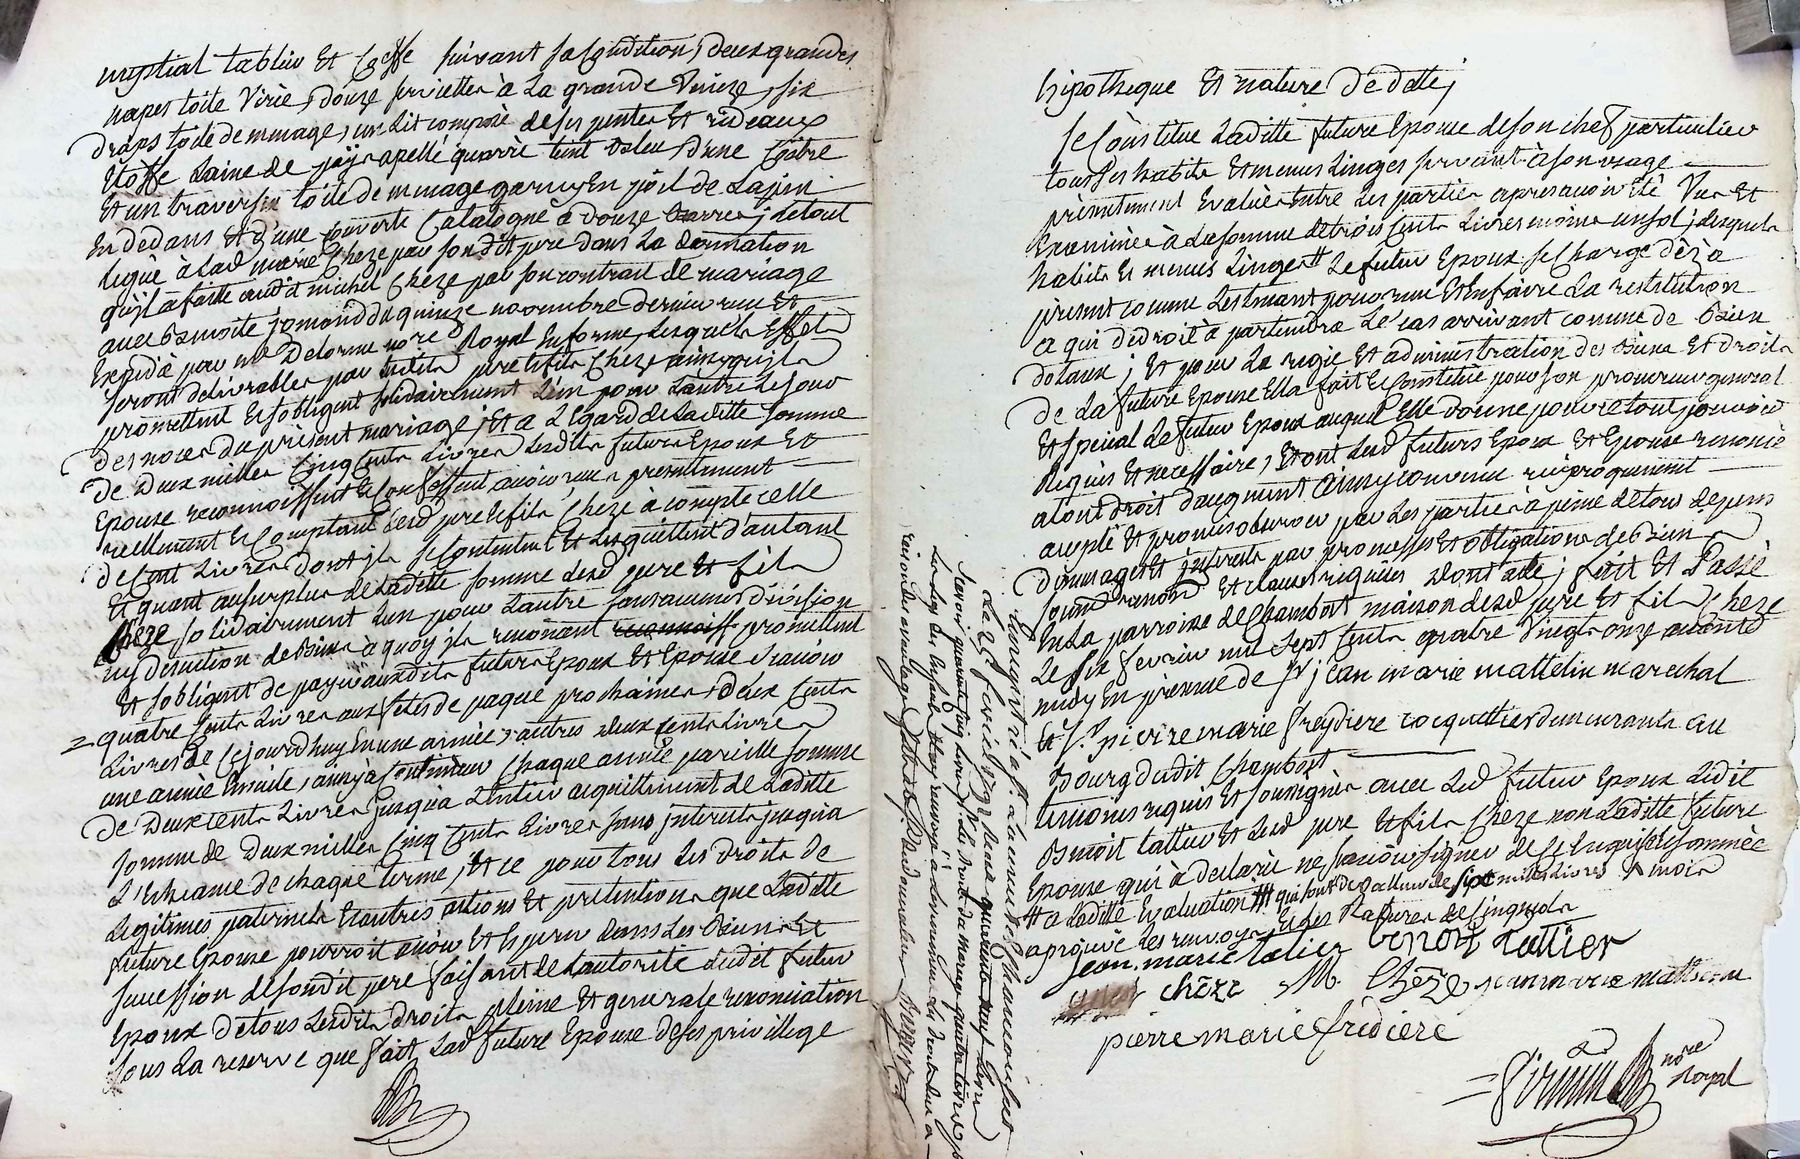 nuptial tablier Et Coeffe suivant sa Condition, deux grandes
napes toile Virié, douze serviettes à La grande Venize, six
draps toile de menage, un Lit composé de ses pentes Et rideaux
Etoffe Laine de païs apellé quarré teint bleu, d'une Coitre
Et un traversin toile de menage garnis En poil de Lapin
En dedans Et d'une couverte Catalogne à douze barres; le tout
legué à Lad. marie Cheze par son dit pere dans La donnation
qu'il a faitte audit michel Cheze par son contrat de mariage
avec Benoite jomond du quinze novembre dernier reçu Et
Expedié par me Delorme no.re Royal En forme, Lesquels Effets
seront delivrables par lesdits pere et fils Cheze ainsy qu'ils
promettent Et s'obligent solidairement L'un pour L'autre Le jour
des noces du présent mariage; Et a L'Egard de Laditte somme
de Deux milles Cinq Cents Livres Lesdits futurs Epoux Et
Epouse reconnoissent Et Confessent avoir reçu presentement
reellement Et Comptant desd. pere et fils Cheze à compte celle
de Cent Livres Dont ils se Contentent Et Les quittent d'autant
Et quant au surplus de Laditte somme lesd. pere Et fils
Cheze solidairement L'un pour L'autre sans aucune division
ny discution de Biens à quoy ils renoncent promettent
Et s'obligent de payer auxdits futurs Epoux Et Epouse sçavoir
= quatre Cents Livres aux fêtes de paque prochaines, deux Cents
Livres de Cejourd'huy En une année, autres deux Cents Livres
une année Ensuite, ainsy à Continuer Chaque année pareille somme
de Deux Cents Livres jusqu'a L'Entier acquittement de Laditte
somme de Deux milles Cinq Cents Livres sans interets jusqu'a
L'Echeance de chaque terme, Et ce pour tous Les Droits de
Legitimes paternels Et autres actions Et pretentions que Laditte
future Epouse pourroit avoir Et Esperer dans Les Biens Et
succession de sondit pere faisant de L'autorité dudit futur
Epoux de tous Lesdits droits pleine Et generale renonciation
sous La reserve que fait Lad. future Epouse de ses privillege
hipotheque Et nature de dette;
Se Constitue Laditte future Epouse de son chef particulier
tous ses habits Et menus Linges servant à son usage
présentement Evalués Entre Les parties apres avoir Eté Vus Et
Examinés à La somme de trois Cents Livres moins un sol; desquels
habits Et menus Linges # Le futur Epoux se Charge dès à
présent comme Les tenant pour reçu Et En faire La restitution
a qui de droit apartiendra Le cas arrivant comme de Biens
dotaux; Et pour La regie Et administration des Biens Et droits
de La future Epouse Elle fait Et Constitue pour son procureur general
Et special Le futur Epoux auquel Elle donne pour ce tout pouvoir
Requis Et necessaire, Et ont Lesd. futurs Epoux Et Epouse renoncé
a tout droit d'augment ainsy convenu réciproquement
accepté Et promis observer par Les parties à peine de tous depens
dommages Et interets par promesses Et obligations de Biens
soumd. renond. Et clauses requises Dont acte; fait Et Passé
En La parroisse de Chambost maison desd. pere Et fils Cheze
Le six fevrier mil sept Cents quatre Vingts onze avant
midy En presence de sr. jean marie mattelin marechal
Et sr. pierre marie freydiere cocquetier demeurants au
Bourg dudit Chambost
temoins requis Et soussignés avec Led. futur Epoux Ledit
Benoit tattier Et Lesd. pere Et fils Cheze non Laditte future
Epouse qui à declaré ne sçavoir signer de ce Enquise Et sommée
# a Laditte Evaluation ### qui sont de Valleur de six milles Livres # moins
aprouvé les renvoys Et les Ratures de Cinq mots
jean marie tatier benoit tattier
chéze M. Chéze jean marie mattelin
pierre marie fredière
= Firmin no.re Royal
Enregistré à St. Laurent de Chamousset
Le 25 fevrier 1791 Reçu quarante neuf Livres
Savoir quarante cinq Livres pr. le droit du mariage, quatre Livres pr.